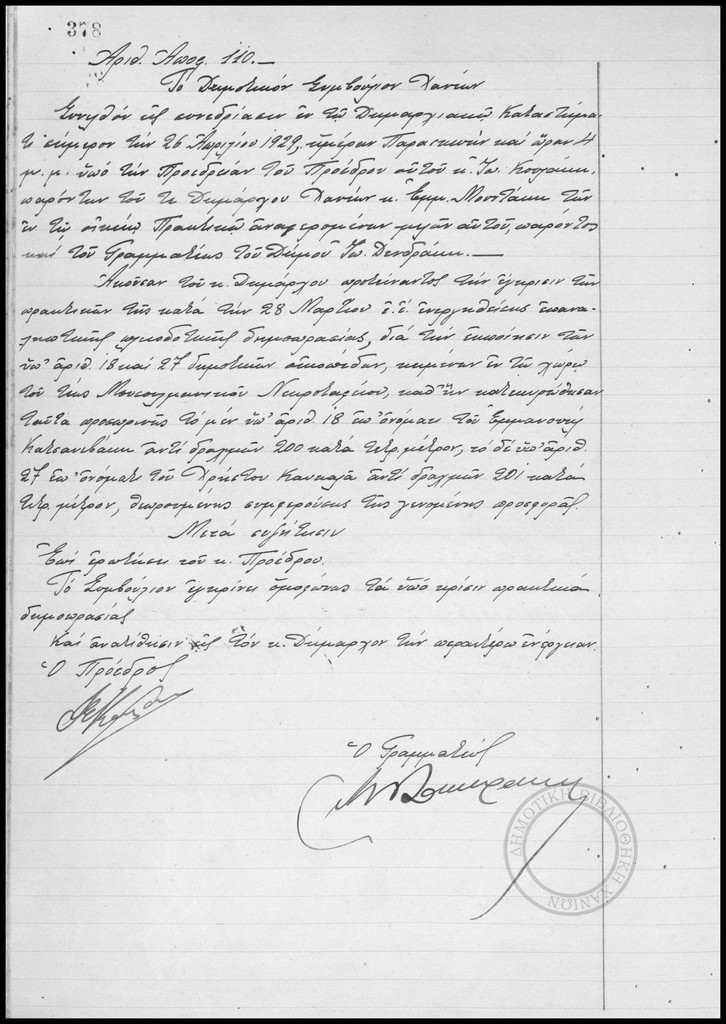 378
Ἀριθ. Ἀποφ. 110.—
Τό Δημοτικόν Συμβούλιον Χανίων
Συνελθόν εἰς συνεδρίασιν ἐν τῷ Δημαρχιακῷ Καταστήμα-
τι σήμερον τήν 26 Ἀπριλίου 1929, ἡμέραν Παρασκευήν καί ὥραν 4
μ.μ. ὑπό τήν Προεδρείαν τοῦ Προέδρου αὐτοῦ κ.
παρόντων τοῦ τε Δημάρχου Χανίων κ. Ἐμμ. Μουντάκη τῶν
ἐν τῷ οἰκείῳ Πρακτικῷ ἀναφερομένων μελῶν αὐτοῦ, παρόντος
καί τοῦ Γραμματέως τοῦ Δήμου Ἰω. Δενδράκη.—
Ἀκοῦσαν τοῦ κ. Δημάρχου προτείναντος τήν ἔγκρισιν τῶν
πρακτικῶν τῆς κατά τήν 28 Μαρτίου ἐ.ἔ. ἐνεργηθείσης ἐπανα-
ληπτικῆς πλειοδοτικῆς δημοπρασίας, διά τήν ἐκποίησιν τῶν
ὑπ' ἀριθ. 18 καί 27 δημοτικῶν οἰκοπέδων, κειμένων ἐν τῷ χώρῳ
τοῦ τῆς Μουσουλμανικοῦ Νεκροταφείου, καθ' ἥν κατεκυρώθησαν
ταῦτα προσωρινῶς τό μέν ὑπ' ἀριθ. 18 ἐπ' ὀνόματι τοῦ Ἐμμανουήλ
Κατσανεβάκη ἀντί δραχμῶν 200 κατά τετρ. μέτρον, τό δέ ὑπ' ἀριθ.
27 ἐπ' ὀνόματι τοῦ Χρήστου Κανκαλᾶ ἀντί δραχμῶν 201 κατά
τετρ. μέτρον, θεωρουμένης συμφερούσης τῆς γενομένης προσφορᾶς.
Μετά συζήτησιν
Ἐπί ἐρωτήσει τοῦ κ. Προέδρου.
Τό Συμβούλιον ἐγκρίνει ὁμοφώνως τά ὑπό κρίσιν πρακτικά
δημοπρασίας
Καί ἀνατίθησιν εἰς τόν κ. Δήμαρχον τήν περαιτέρω ἐνέργειαν.
Ὁ Πρόεδρος
Ὁ Γραμματεύς
ΔΗΜΟΤΙΚΗ ΒΙΒΛΙΟΘΗΚΗ ΧΑΝΙΩΝ